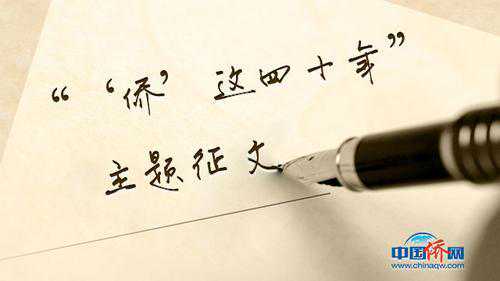 “‘侨’这四十年”
主题征文
中国侨网
www.chinaqw.com